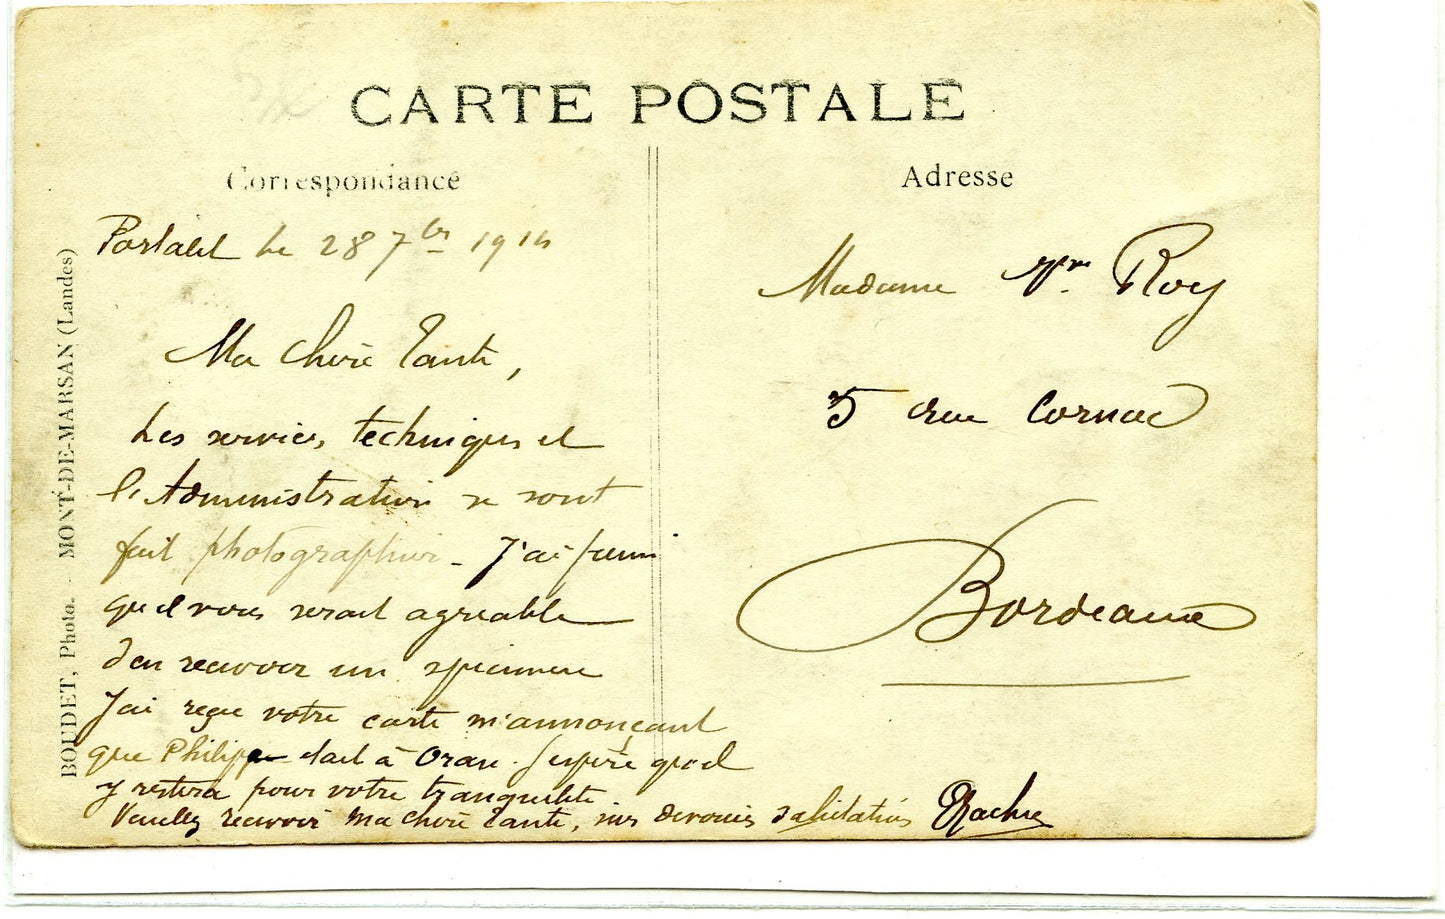 CARTE POSTALE
Correspondance
Adresse
BOUDET, Photo. - MONT-DE-MARSAN (Landes)
le 28 7bre 1914
Ma chère Tante,
Les services techniques et
l'Administration se sont
fait photographier - J'ai pensé
qu'il vous serait agréable
d'en recevoir un spécimen
J'ai reçu votre carte m'annonçant
que Philippe était à Oran. J'espère qu'il
y restera pour votre tranquilité
Veuillez recevoir Ma chère Tante, mes salutations
Madame Vve Roy
5 rue Cornac
Bordeaux